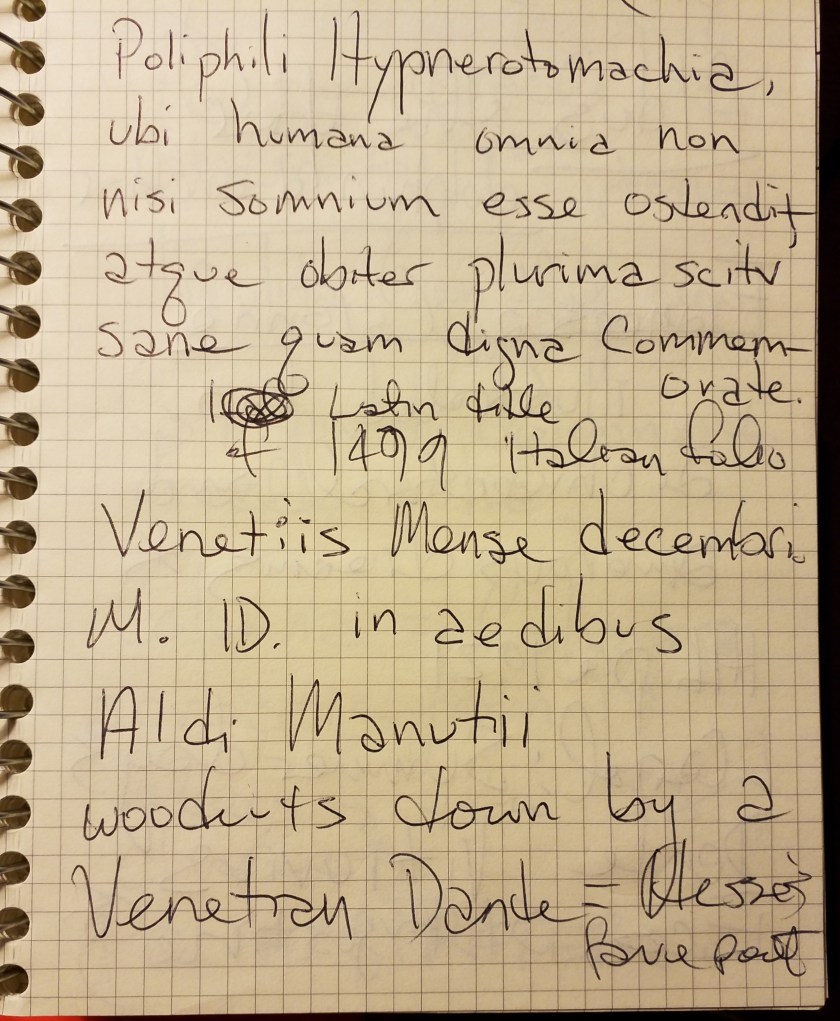 Poliphili Hypnerotomachia,
ubi humana omnia non
nisi Somnium esse ostendit,
atque obiter plurima scitu
sane quam digna Commem-
orate.
Latin title
of 1499 Italian folio
Venetiis Mense decembri.
M. ID. in aedibus
Aldi Manutii
woodcuts down by a
Venetian Dante =